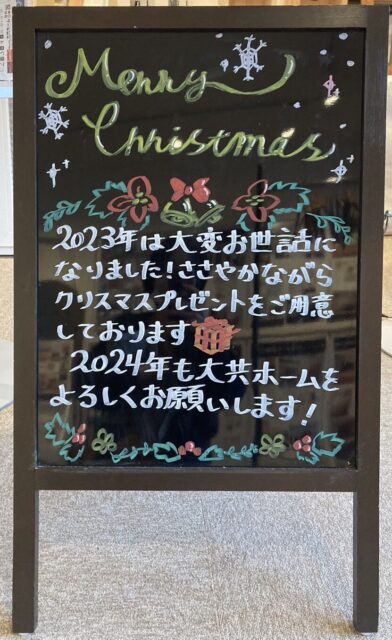 Merry
Christmas
2023年は大変お世話に
なりました！ささやかながら
クリスマスプレゼントをご用意
しております
2024年も大共ホームを
よろしくお願いします！